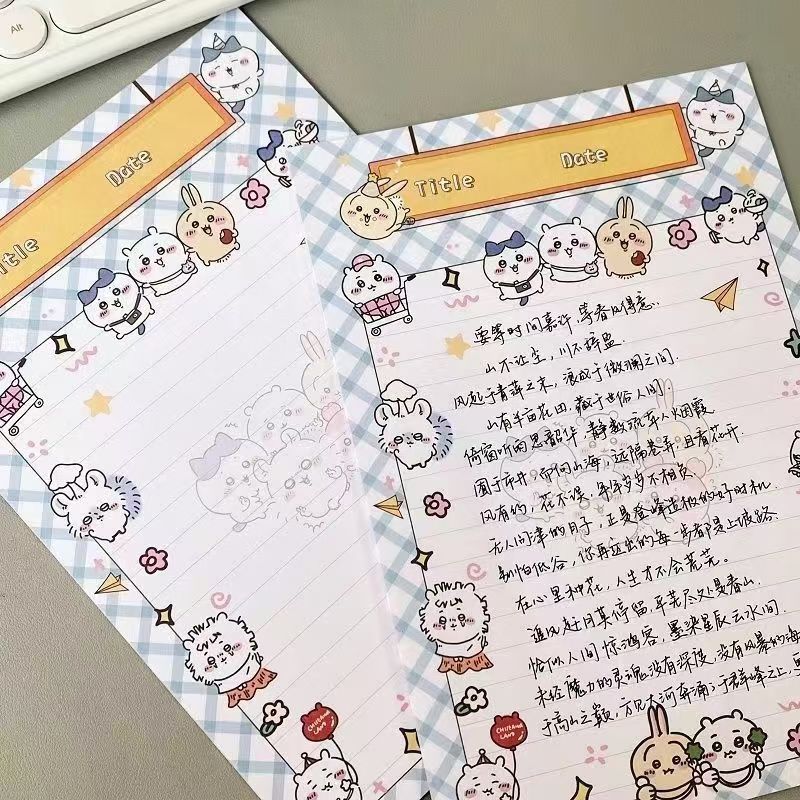 Alt
Date
Title Date
要等时间嘉许,等春风得意.
山不让尘,川不辞盈.
风起于青萍之末,浪成于微澜之间.
山有半亩花田,藏于世俗人间
倚窗听雨思韶华,静数流年人
囿于市井,而向山海,远隔巷弄,且看花开
风有约,花不误,年年岁岁不相负
无人问津的日子,正是登峰造极的好时机
别怕低谷,你再迈出的每一步都是上坡路
在心里种花,人生才不会荒芜。
追风赶月莫停留,平芜尽处是春山.
恰似人间惊鸿客,墨染星辰云水间.
未经魔力的灵魂没有深度,没有风暴的海
于高山之巅,方见大河奔涌;于群峰之上,
CHIIKAWA LAND
CHIIKAWA LAND